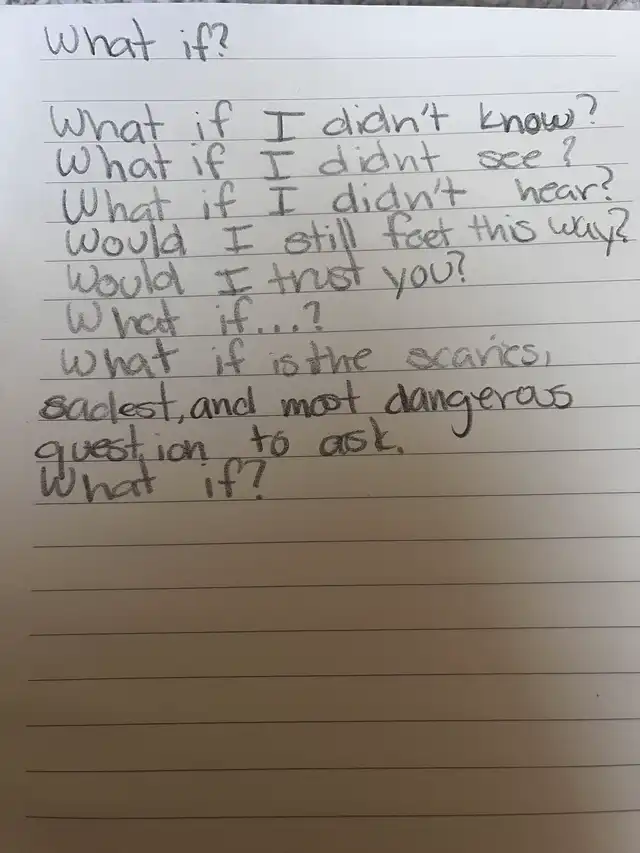 What if?
What if I didn't know?
What if I didnt see?
What if I didn't hear?
Would I still feet this way?
Would I trust you?
What if...?
What if is the scaries,
sadest, and most dangerous
question to ask.
What if?